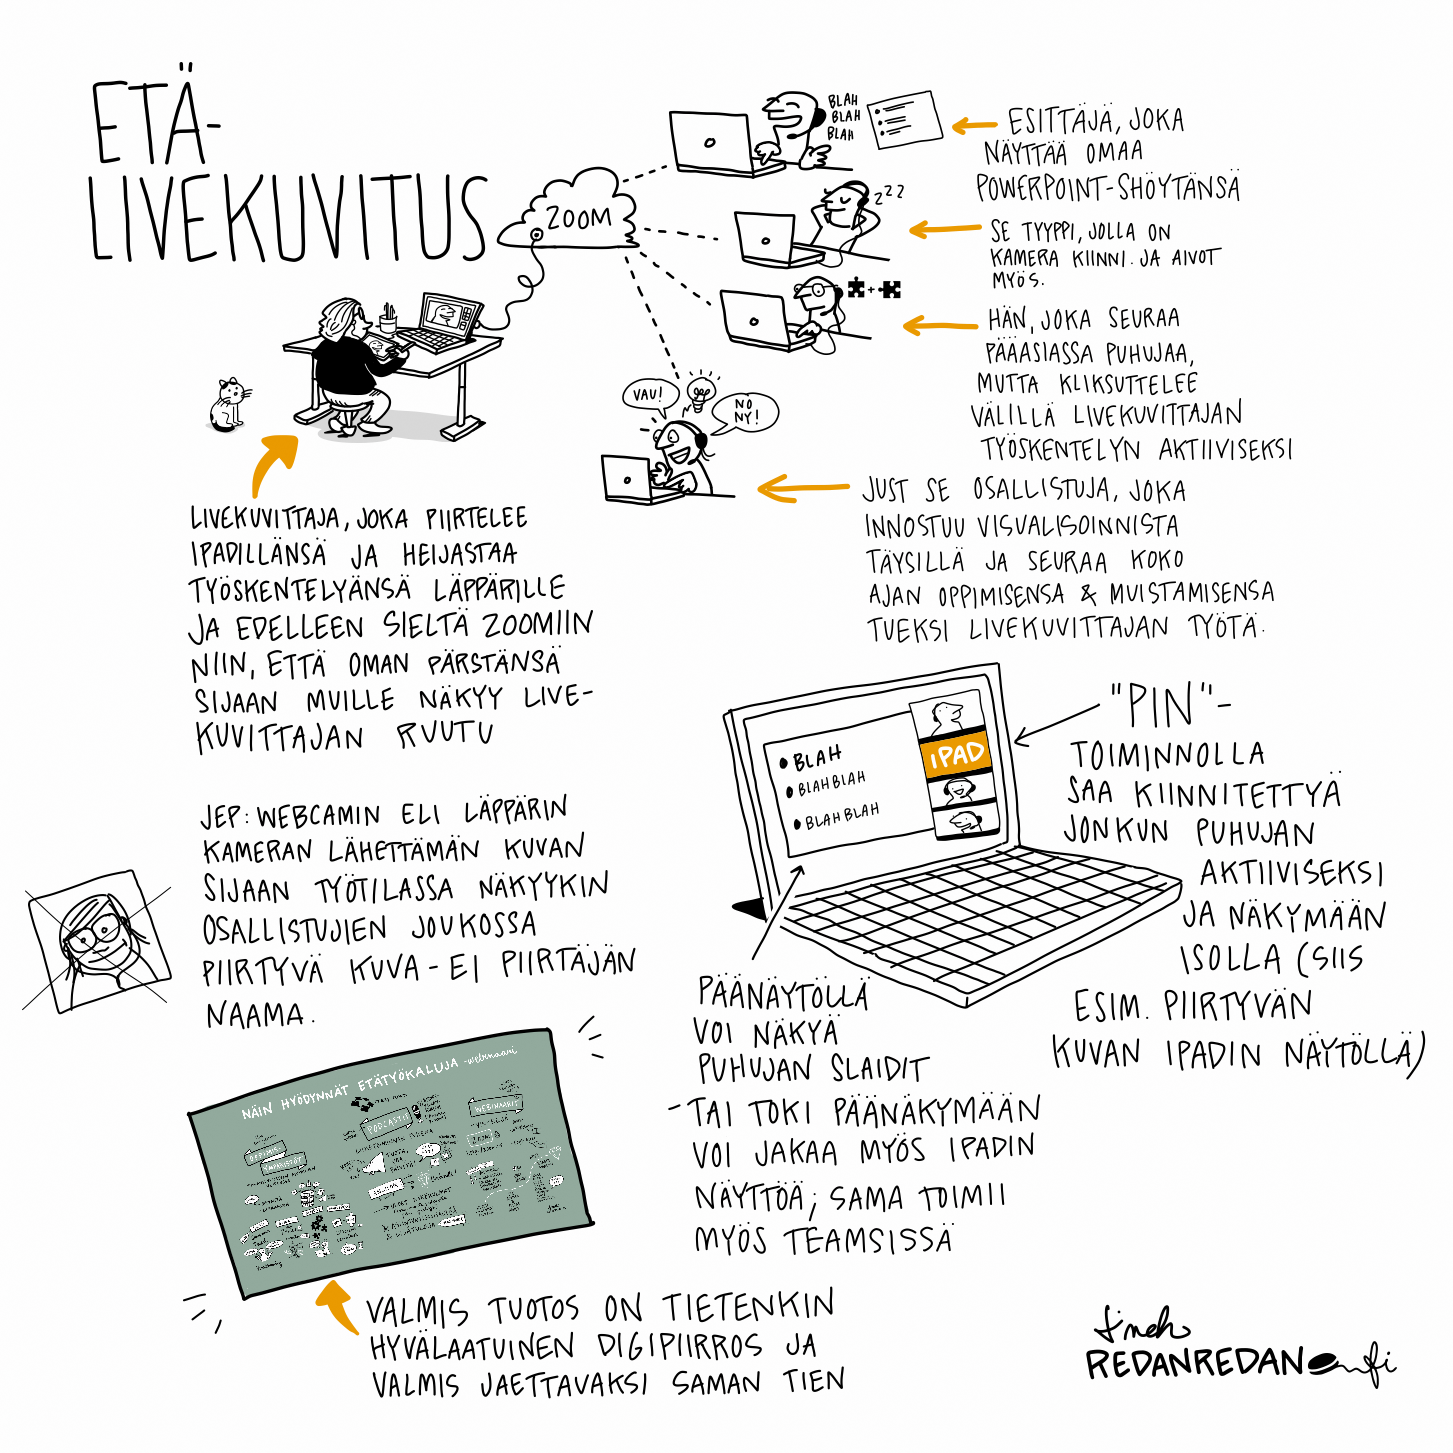 ETÄ-
LIVEKUVITUS
ZOOM
BLAH
BLAH
BLAH
ESITTÄJÄ, JOKA
NÄYTTÄÄ OMAA
POWERPOINT-SHÖYTÄNSÄ
ZZZ
SE TYYPPI, JOLLA ON
KAMERA KIINNI. JA AIVOT
MYÖS.
+
HÄN, JOKA SEURAA
PÄÄASIASSA PUHUJAA,
MUTTA KLIKSUTTELEE
VÄLILLÄ LIVEKUVITTAJAN
TYÖSKENTELYN AKTIIVISEKSI
VAU!
NO
NY!
JUST SE OSALLISTUJA, JOKA
INNOSTUU VISUALISOINNISTA
TÄYSILLÄ JA SEURAA KOKO
AJAN OPPIMISENSA & MUISTAMISENSA
TUEKSI LIVEKUVITTAJAN TYÖTÄ.
LIVEKUVITTAJA, JOKA PIIRTELEE
IPADILLÄNSÄ JA HEIJASTAA
TYÖSKENTELYÄNSÄ LÄPPÄRILLE
JA EDELLEEN SIELTÄ ZOOMIIN
NIIN, ETTÄ OMAN PÄRSTÄNSÄ
SIJAAN MUILLE NÄKYY LIVE-
KUVITTAJAN RUUTU
JEP: WEBCAMIN ELI LÄPPÄRIN
KAMERAN LÄHETTÄMÄN KUVAN
SIJAAN TYÖTILASSA NÄKYYKIN
OSALLISTUJIEN JOUKOSSA
PIIRTYVÄ KUVA - EI PIIRTÄJÄN
NAAMA.
BLAH
BLAHBLAH
BLAHBLAH
IPAD
"PIN"-
TOIMINNOLLA
SAA KIINNITETTYÄ
JONKUN PUHUJAN
AKTIIVISEKSI
JA NÄKYMÄÄN
ISOLLA (SIIS
ESIM. PIIRTYVÄN
KUVAN IPADIN NÄYTÖLLÄ)
PÄÄNÄYTÖLLÄ
VOI NÄKYÄ
PUHUJAN SLAIDIT
-TAI TOKI PÄÄNÄKYMÄÄN
VOI JAKAA MYÖS IPADIN
NÄYTTÖÄ; SAMA TOIMII
MYÖS TEAMSISSÄ
NÄIN HYÖDYNNÄT ETÄTYÖKALUJA -webinaari
PODCASTIT
WEBINAARIT
OPPIMIS
YMPÄRISTÖT
VALMIS TUOTOS ON TIETENKIN
HYVÄLAATUINEN DIGIPIIRROS JA
VALMIS JAETTAVAKSI SAMAN TIEN
REDANREDAN.fi